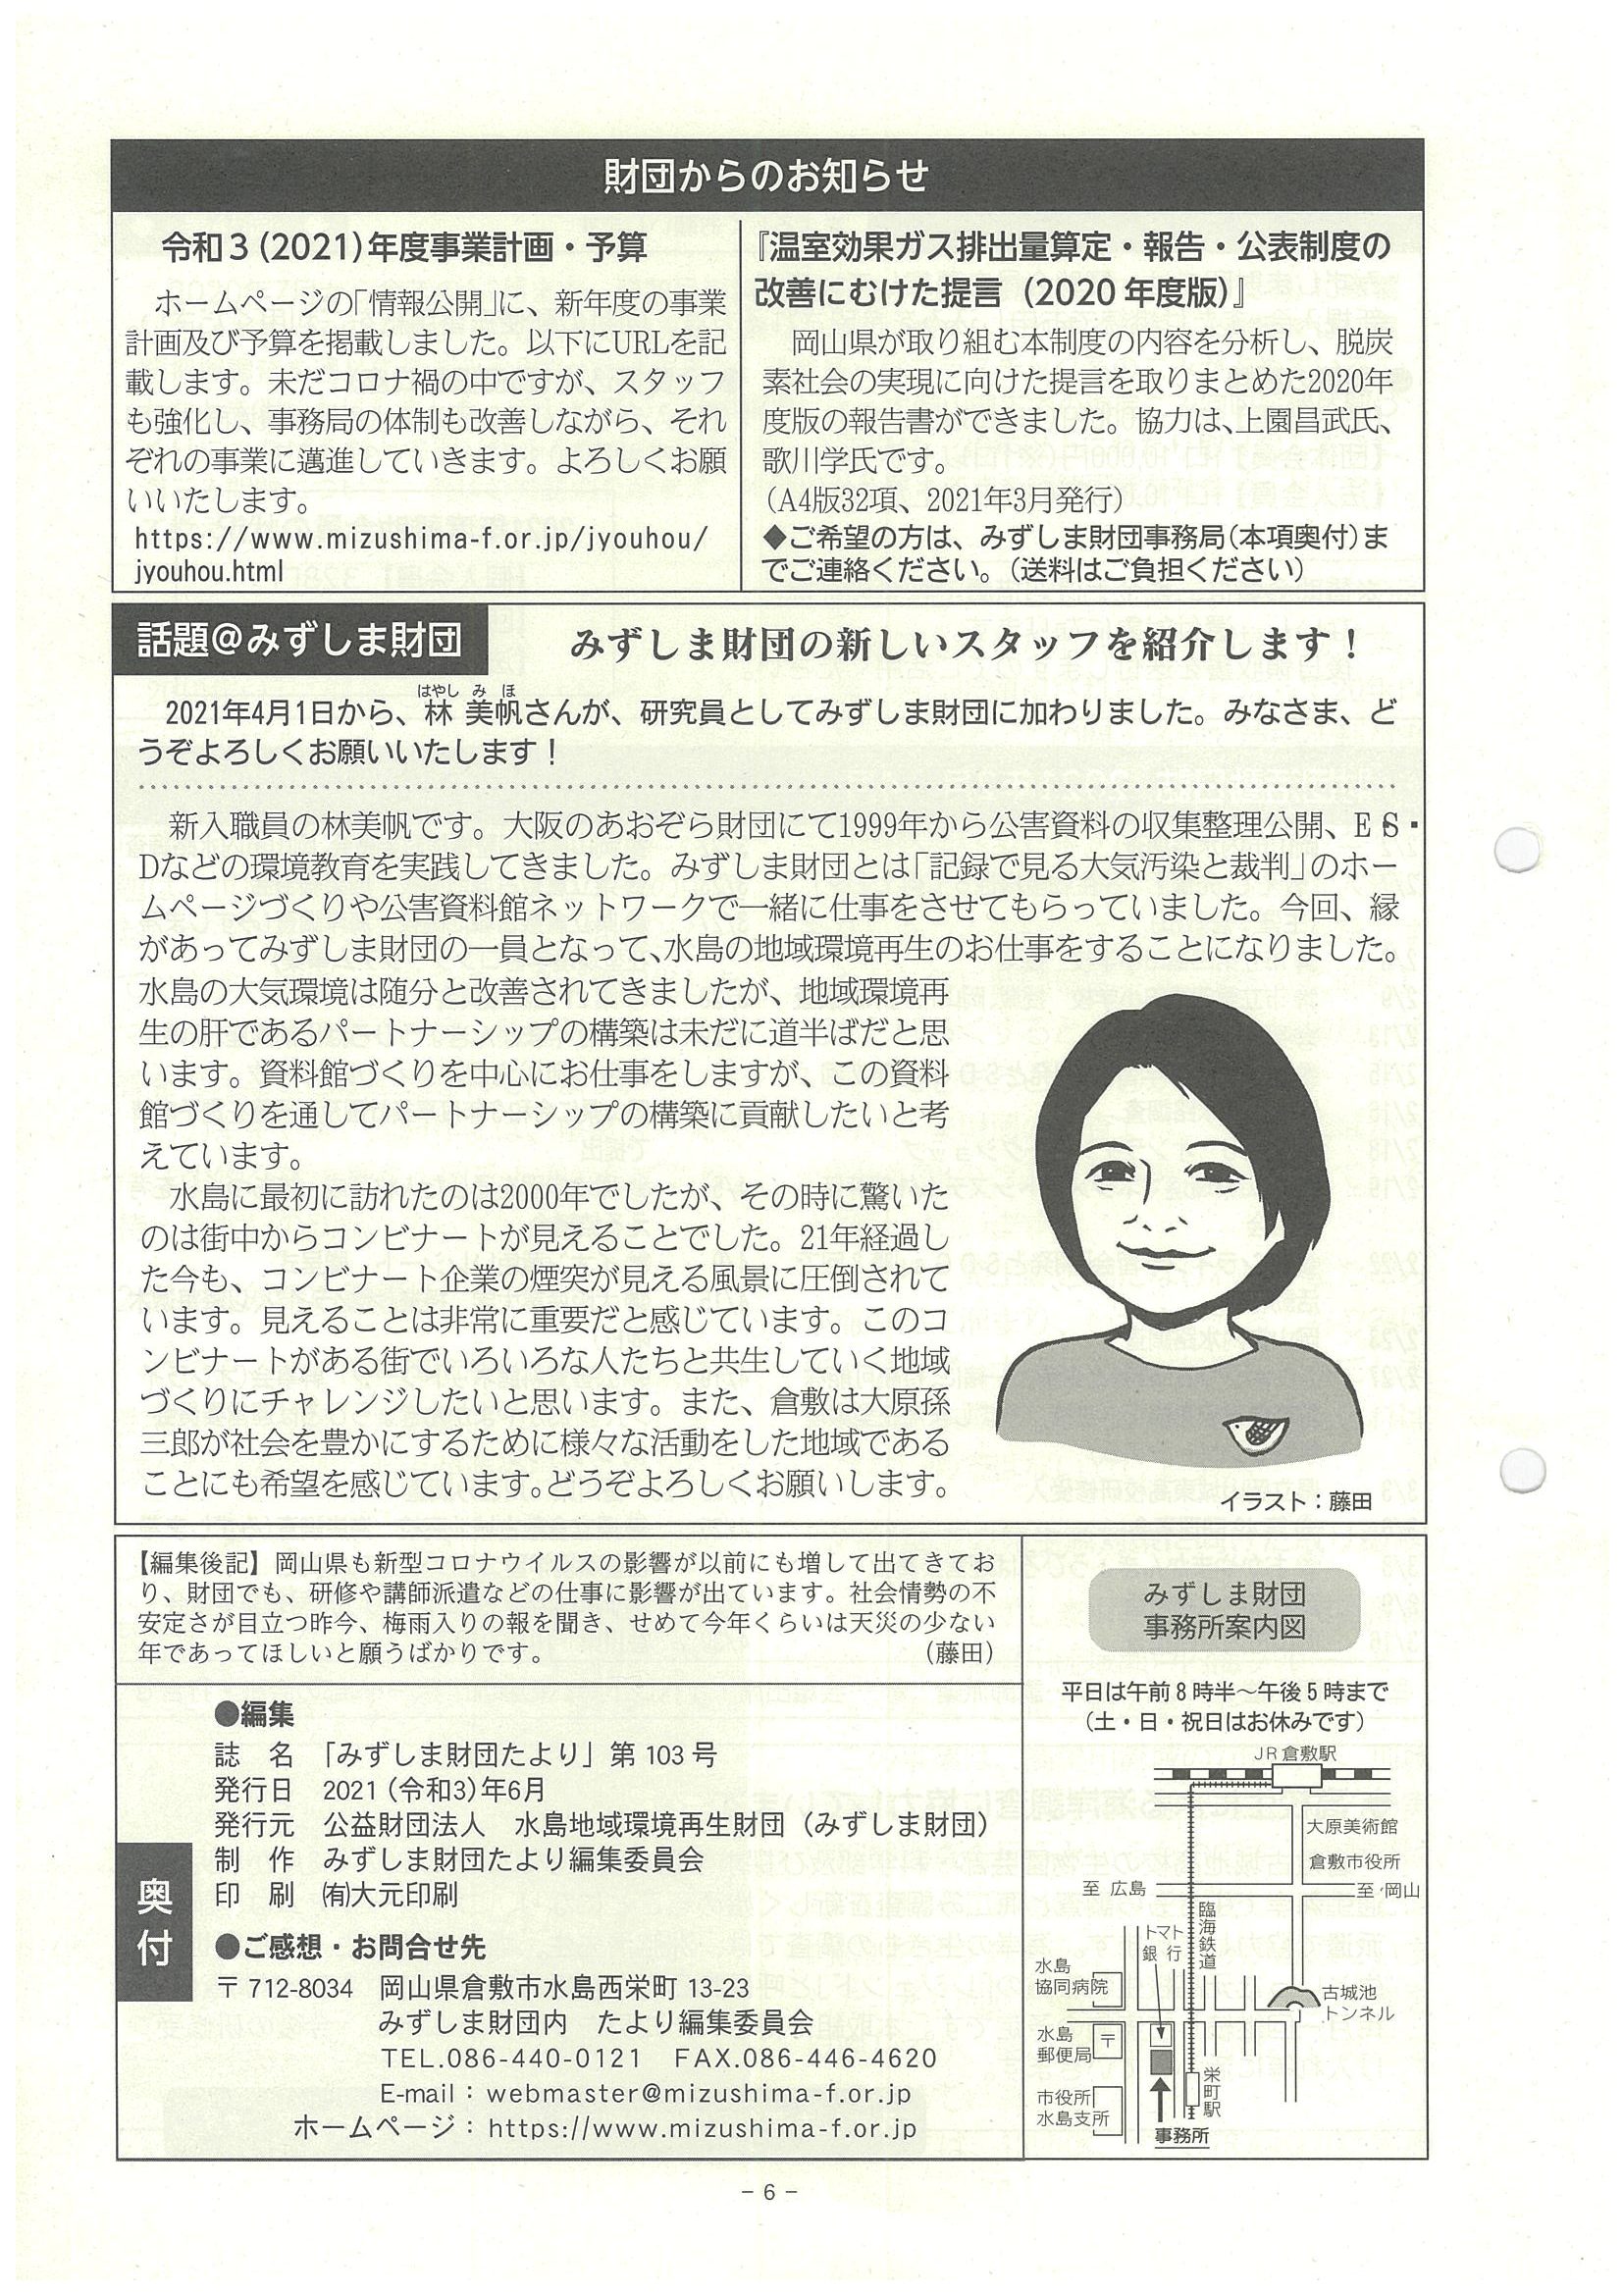 財団からのお知らせ
令和３(2021)年度事業計画・予算
ホームページの「情報公開」に、新年度の事業
計画及び予算を掲載しました。以下にURLを記
載します。未だコロナ禍の中ですが、スタッフ
も強化し、事務局の体制も改善しながら、それ
ぞれの事業に邁進していきます。よろしくお願
いいたします。
https://www.mizushima-f.or.jp/jyouhou/
jyouhou.html
『温室効果ガス排出量算定・報告・公表制度の
改善にむけた提言（2020年度版）』
岡山県が取り組む本制度の内容を分析し、脱炭
素社会の実現に向けた提言を取りまとめた2020年
度版の報告書ができました。協力は、上園昌武氏、
歌川学氏です。
（A4版32項、2021年3月発行）
◆ご希望の方は、みずしま財団事務局（本項奥付）ま
でご連絡ください。（送料はご負担ください）
話題＠みずしま財団
みずしま財団の新しいスタッフを紹介します！
はやし み ほ
2021年4月1日から、林 美帆さんが、研究員としてみずしま財団に加わりました。みなさま、ど
うぞよろしくお願いいたします！
新入職員の林美帆です。大阪のあおぞら財団にて1999年から公害資料の収集整理公開、ES・
Dなどの環境教育を実践してきました。みずしま財団とは「記録で見る大気汚染と裁判」のホー
ムページづくりや公害資料館ネットワークで一緒に仕事をさせてもらっていました。今回、縁
があってみずしま財団の一員となって、水島の地域環境再生のお仕事をすることになりました。
水島の大気環境は随分と改善されてきましたが、地域環境再
生の肝であるパートナーシップの構築は未だに道半ばだと思
います。資料館づくりを中心にお仕事をしますが、この資料
館づくりを通してパートナーシップの構築に貢献したいと考
えています。
水島に最初に訪れたのは2000年でしたが、その時に驚いた
のは街中からコンビナートが見えることでした。21年経過し
た今も、コンビナート企業の煙突が見える風景に圧倒されて
います。見えることは非常に重要だと感じています。このコ
ンビナートがある街でいろいろな人たちと共生していく地域
づくりにチャレンジしたいと思います。また、倉敷は大原孫
三郎が社会を豊かにするために様々な活動をした地域である
ことにも希望を感じています。どうぞよろしくお願いします。
イラスト：藤田
【編集後記】岡山県も新型コロナウイルスの影響が以前にも増して出てきてお
り、財団でも、研修や講師派遣などの仕事に影響が出ています。社会情勢の不
安定さが目立つ昨今、梅雨入りの報を聞き、せめて今年くらいは天災の少ない
年であってほしいと願うばかりです。 （藤田）
奥付
●編集
誌　名　「みずしま財団たより」第 103 号
発行日　2021（令和3）年6月
発行元　公益財団法人　水島地域環境再生財団（みずしま財団）
制　作　みずしま財団たより編集委員会
印　刷　㈲大元印刷
●ご感想・お問合せ先
〒712-8034　岡山県倉敷市水島西栄町 13-23
みずしま財団内　たより編集委員会
TEL.086-440-0121　FAX.086-446-4620
E-mail：webmaster@mizushima-f.or.jp
ホームページ：https://www.mizushima-f.or.jp
みずしま財団
事務所案内図
平日は午前８時半～午後５時まで
（土・日・祝日はお休みです）
JR倉敷駅
大原美術館
倉敷市役所
至 広島
至 岡山
臨海鉄道
トマト
銀 行
水島
協同病院
古城池
トンネル
水島
郵便局
〒
栄町駅
市役所
水島支所
事務所
- 6 -